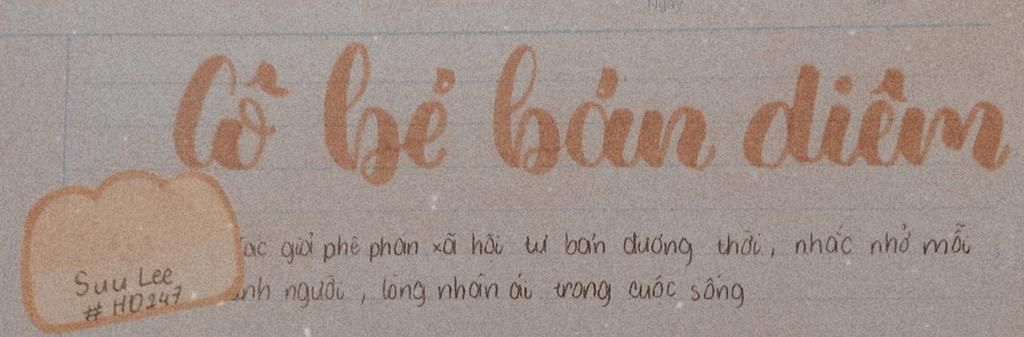 Ngày
Cô bé bán diêm
Tác giả phê phán xã hội tư bản đương thời, nhắc nhở mỗi
người, lòng nhân ái trong cuộc sống
Suu Lee
# HD247